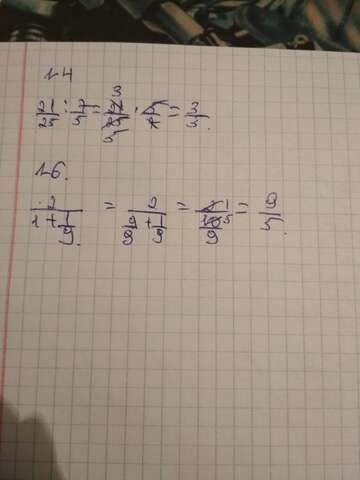 14
21/25 : 7/5 = 21/25 · 5/7 = 3/5.
16.
2/(1 + 1/9) = 2/(9/9 + 1/9) = 2/(10/9) = 9/5.